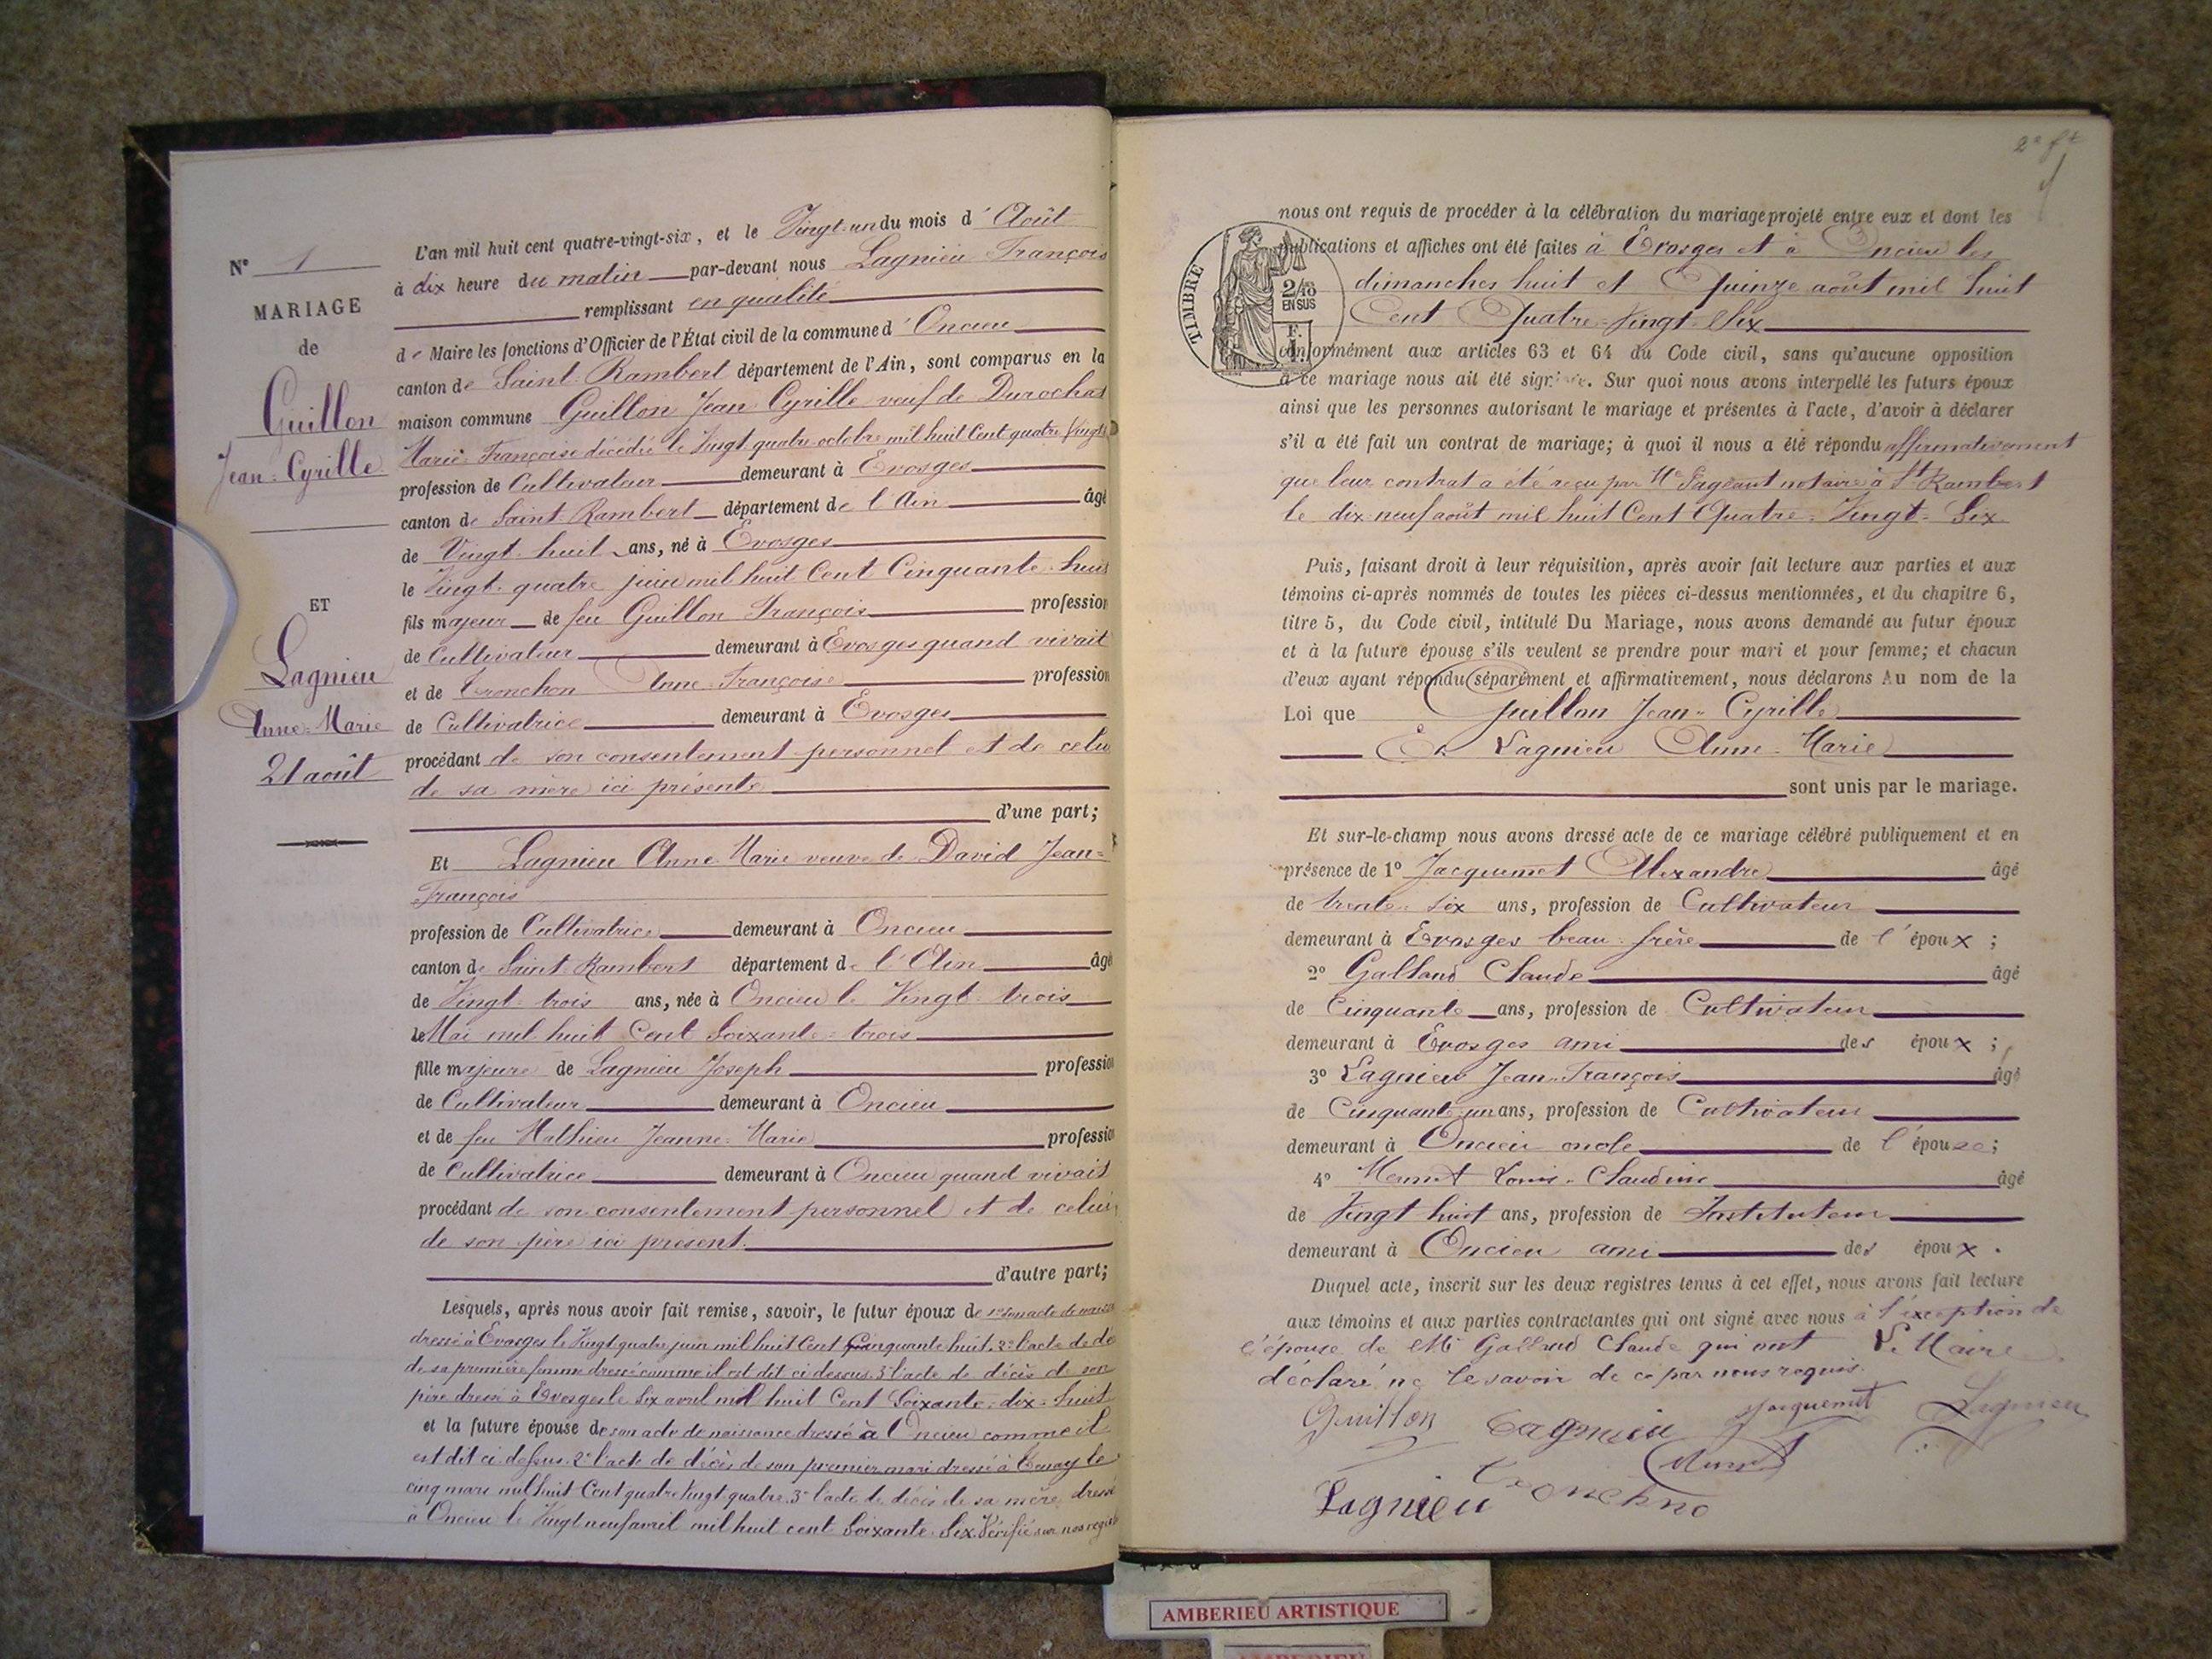 N° 1
MARIAGE
de
Guillon
Jean-Cyrille
ET
Lagnieu
Anne-Marie
21 août
L'an mil huit cent quatre-vingt-six, et le Vingt-un du mois d'Août
à dix heure du matin par-devant nous Lagnieu François
remplissant en qualité
de Maire les fonctions d'Officier de l'État civil de la commune d'Oncieu
canton de Saint-Rambert département de l'Ain, sont comparus en la
maison commune Guillon Jean Cyrille veuf de Durochat
Marie Françoise décédée le Vingt quatre octobre mil huit Cent quatre Vingt
profession de Cultivateur demeurant à Evosges
canton de Saint-Rambert département de l'Ain âgé
de Vingt-huit ans, né à Evosges
le Vingt-quatre juin mil huit Cent Cinquante-huit
fils majeur de feu Guillon François profession
de Cultivateur demeurant à Evosges quand vivait
et de Tronchon Anne-Françoise profession
de Cultivatrice demeurant à Evosges
procédant de son consentement personnel et de celui
de sa mère ici présente
d'une part;
Et Lagnieu Anne-Marie veuve de David Jean-
François
profession de Cultivatrice demeurant à Oncieu
canton de Saint-Rambert département de l'Ain âgé
de Vingt-trois ans, née à Oncieu le Vingt-trois
le Mai mil huit Cent Soixante-trois
fille majeure de Lagnieu Joseph profession
de Cultivateur demeurant à Oncieu
et de feu Mathieu Jeanne-Marie profession
de Cultivatrice demeurant à Oncieu quand vivait
procédant de son consentement personnel et de celui
de son père ici présent.
d'autre part;
Lesquels, après nous avoir fait remise, savoir, le futur époux de 1° son acte de
dressé à Evosges le Vingt quatre juin mil huit Cent Cinquante huit. 2° l'acte de dé
de sa première femme dressé comme il est dit ci dessus. 3° l'acte de décès de son
père dressé à Evosges le Six avril mil huit Cent Soixante-dix-huit
et la future épouse de son acte de naissance dressé à Oncieu comme il
est dit ci dessus. 2° l'acte de décès de son premier mari dressé à Tenay le
cinq mars mil huit Cent quatre Vingt quatre. 3° l'acte de décès de sa mère dressé
à Oncieu le Vingt neuf avril mil huit cent Soixante-Six. Vérifié sur nos
2e ft
TIMBRE
2/10
EN SUS
nous ont requis de procéder à la célébration du mariage projeté entre eux et dont les
publications et affiches ont été faites à Evosges et à Oncieu les
dimanches huit et Quinze août mil huit
Cent Quatre-Vingt-Six
conformément aux articles 63 et 64 du Code civil, sans qu'aucune opposition
à ce mariage nous ait été signifiée. Sur quoi nous avons interpellé les futurs époux
ainsi que les personnes autorisant le mariage et présentes à l'acte, d'avoir à déclarer
s'il a été fait un contrat de mariage; à quoi il nous a été répondu affirmativement
que leur contrat a été reçu par Me notaire à St Rambert
le dix-neuf août mil huit Cent Quatre-Vingt-Six
Puis, faisant droit à leur réquisition, après avoir fait lecture aux parties et aux
témoins ci-après nommés de toutes les pièces ci-dessus mentionnées, et du chapitre 6,
titre 5, du Code civil, intitulé Du Mariage, nous avons demandé au futur époux
et à la future épouse s'ils veulent se prendre pour mari et pour femme; et chacun
d'eux ayant répondu séparément et affirmativement, nous déclarons Au nom de la
Loi que Guillon Jean-Cyrille
Et Lagnieu Anne-Marie
sont unis par le mariage.
Et sur-le-champ nous avons dressé acte de ce mariage célébré publiquement et en
présence de 1° Jacquemet Alexandre âgé
de trente-six ans, profession de Cultivateur
demeurant à Evosges beau-frère de l'époux;
2° Galland Claude âgé
de Cinquante ans, profession de Cultivateur
demeurant à Evosges ami des époux;
3° Lagnieu Jean-François âgé
de Cinquante-un ans, profession de Cultivateur
demeurant à Oncieu oncle de l'épouse;
4° Louis-Claudine âgé
de Vingt huit ans, profession de Instituteur
demeurant à Oncieu ami des époux.
Duquel acte, inscrit sur les deux registres tenus à cet effet, nous avons fait lecture
aux témoins et aux parties contractantes qui ont signé avec nous à l'exception de
l'épouse de Mr Galland Claude qui ont
déclaré ne le savoir de ce par nous requis.
Le Maire
Guillon Lagnieu Jacquemet Lagnieu
Lagnieu
AMBERIEU ARTISTIQUE
AMBERIEU